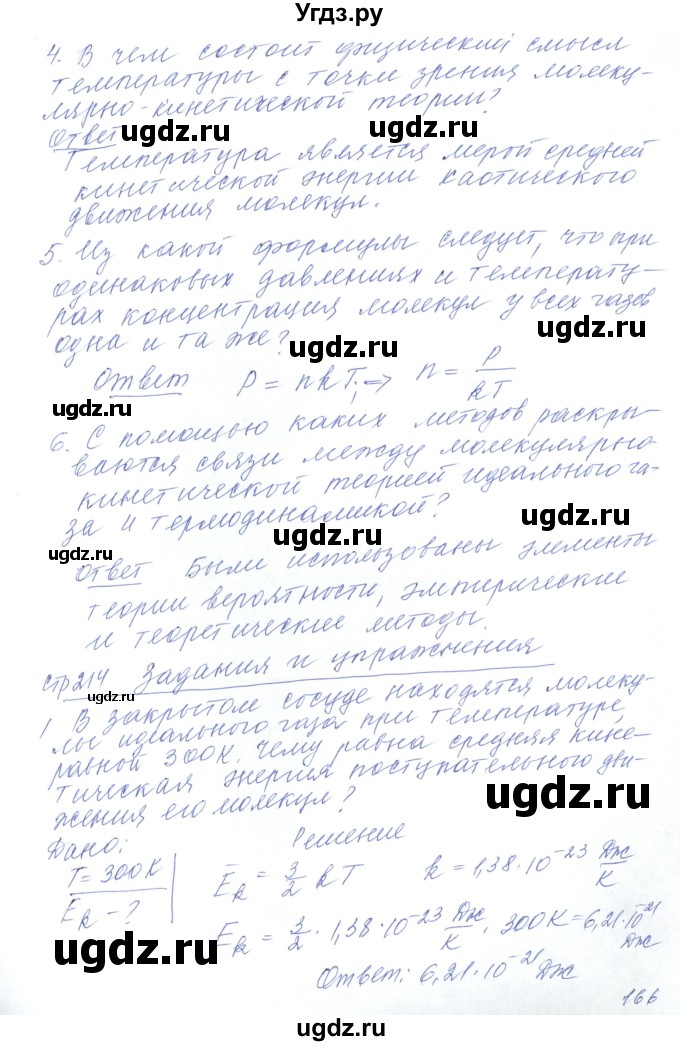 Угдз.ру
4. В чем состоит физический смысл
температуры с точки зрения молеку-
лярно-кинетической теории?
Ответ
ugdz.ru ugdz.ru
Температура является мерой средней
кинетической энергии хаотического
движения молекул.
5. Из какой формулы следует, что при
одинаковых давлениях и температу-
рах концентрация молекул у всех газов
одна и та же?
ugdz.ru ugdz.ru
Ответ P = nkT; ⇒ n = P/kT
6. С помощью каких методов раскры-
ваются связи между молекулярно-
кинетической теорией идеального га-
за и термодинамикой?
ugdz.ru ugdz.ru
Ответ Были использованы элементы
теории вероятности, эмпирические
и теоретические методы.
ugdz.ru
стр 214 Задания и упражнения
ugdz.ru
1 В закрытом сосуде находятся молеку-
лы идеального газа при температуре,
равной 300К. Чему равна средняя кине-
тическая энергия поступательного дви-
жения его молекул?
ugdz.ru
Дано: Решение
T = 300К
E̅k - ?
E̅k = 3/2 kT k = 1,38 · 10⁻²³ Дж/К
E̅k = 3/2 · 1,38 · 10⁻²³ Дж/К · 300К = 6,21 · 10⁻²¹ Дж
Ответ: 6,21 · 10⁻²¹ Дж
166
ugdz.ru